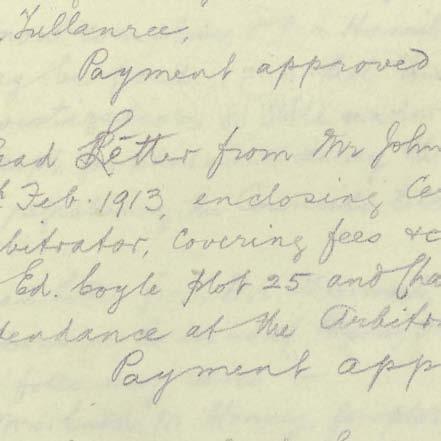 Tullanree,
Payment approved
ead Letter from Mr John
Feb. 1913, enclosing Ce
bitrator, covering fees &c
Ed. Coyle plot 25 and Cha
tendance at the Arbitra
Payment app